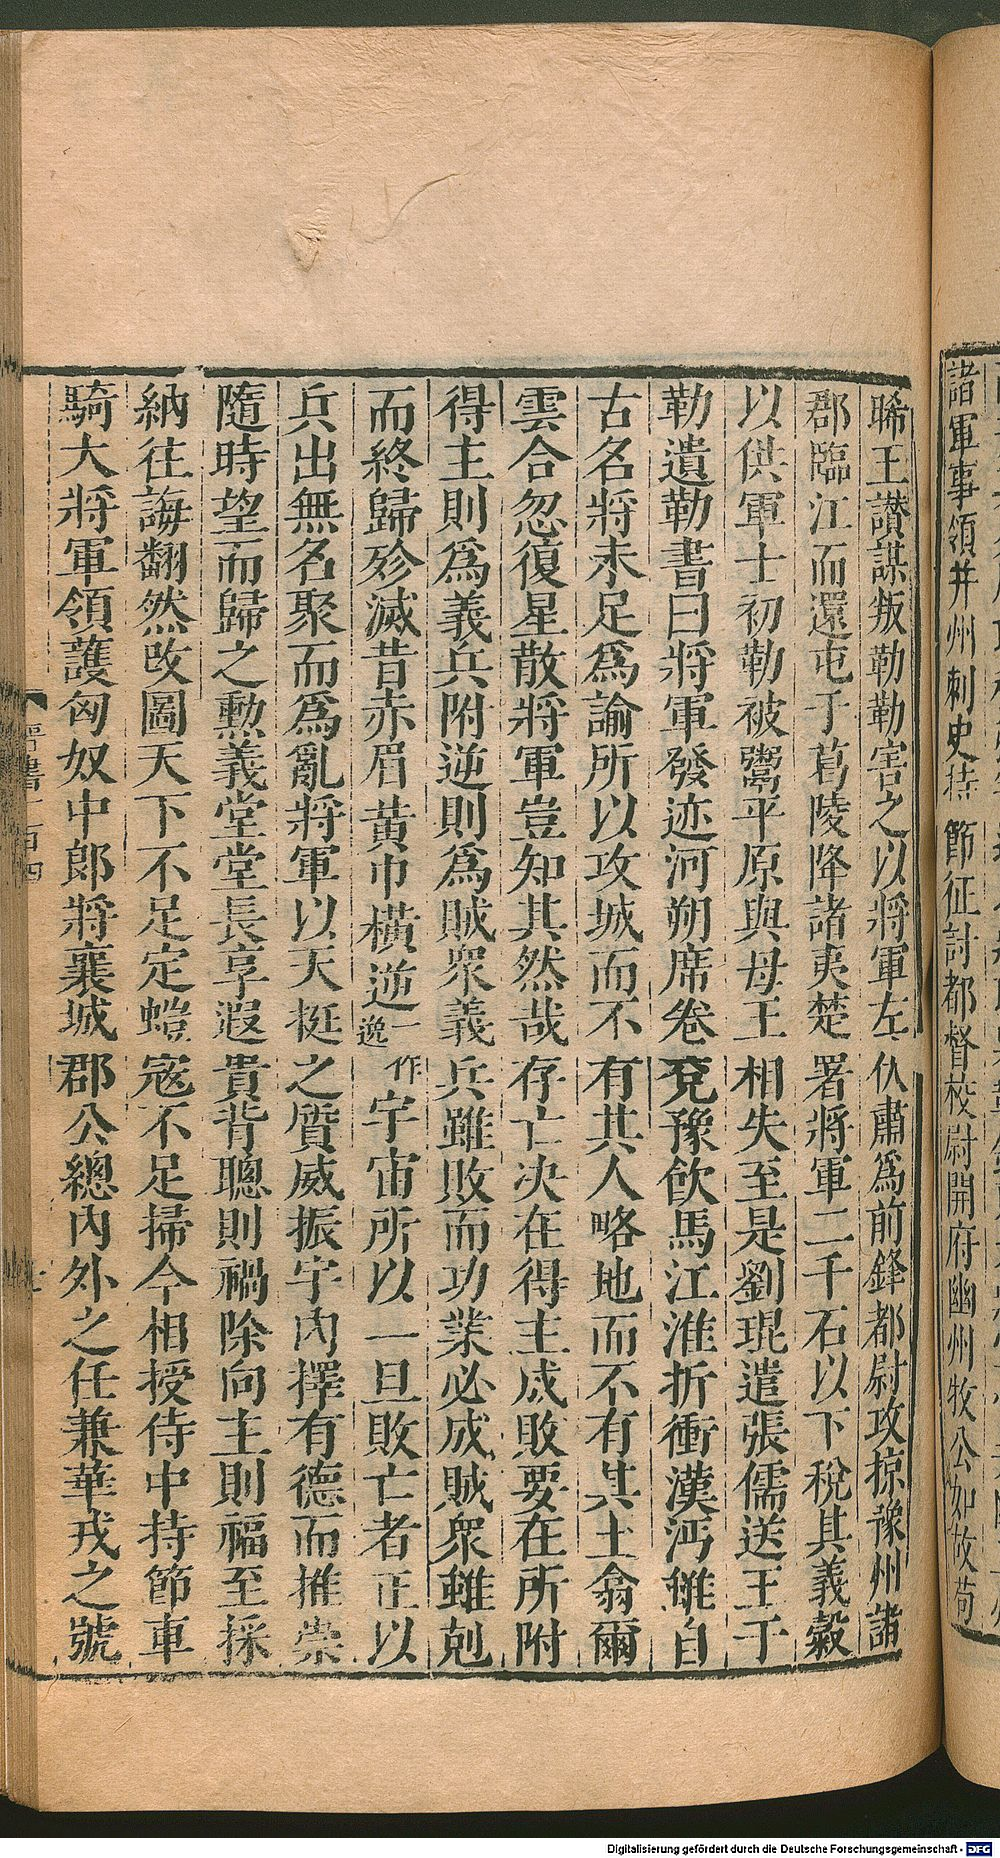 諸軍事領幷州刺史持節征討都督校尉開府幽州牧公如故苟
晞王讃謀叛勒勒害之以將軍左伏肅爲前鋒都尉攻掠豫州諸
郡臨江而還屯于葛陵降諸夷楚署將軍二千石以下稅其義穀
以供軍士初勒被鬻平原與母王相失至是劉琨遣張儒送王于
勒遺勒書曰將軍發迹河朔席卷兗豫飮馬江淮折衝漢沔雖自
古名將未足爲諭所以攻城而不有其人略地而不有其土翕爾
雲合忽復星散將軍豈知其然哉存亡决在得主成敗要在所附
得主則爲義兵附逆則爲賊衆義兵雖敗而功業必成賊衆雖剋
而終歸殄滅昔赤眉黃巾橫逆一作逸宇宙所以一旦敗亡者正以
兵出無名聚而爲亂將軍以天挺之質威振宇內擇有德而推崇
隨時望而歸之勲義堂堂長享遐貴背聰則禍除向主則福至採
納往誨翻然改圖天下不足定螘寇不足掃今相授侍中持節車
騎大將軍領護匈奴中郎將襄城郡公總內外之任兼華戎之號
晉書一百四
Digitalisierung gefördert durch die Deutsche Forschungsgemeinschaft - DFG